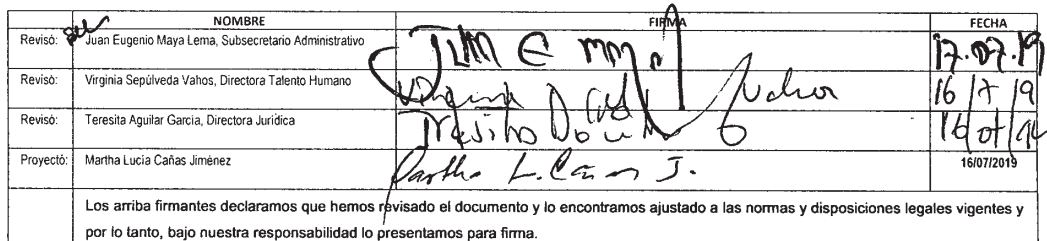 NOMBRE FIRMA FECHA
Revisó: Juan Eugenio Maya Lema, Subsecretario Administrativo 17.07.19
Revisó: Virginia Sepúlveda Vahos, Directora Talento Humano 16/7/19
Revisó: Teresita Aguilar García, Directora Jurídica
Proyectó: Martha Lucía Cañas Jiménez Martha L. Cañas J. 16/07/2019
Los arriba firmantes declaramos que hemos revisado el documento y lo encontramos ajustado a las normas y disposiciones legales vigentes y
por lo tanto, bajo nuestra responsabilidad lo presentamos para firma.